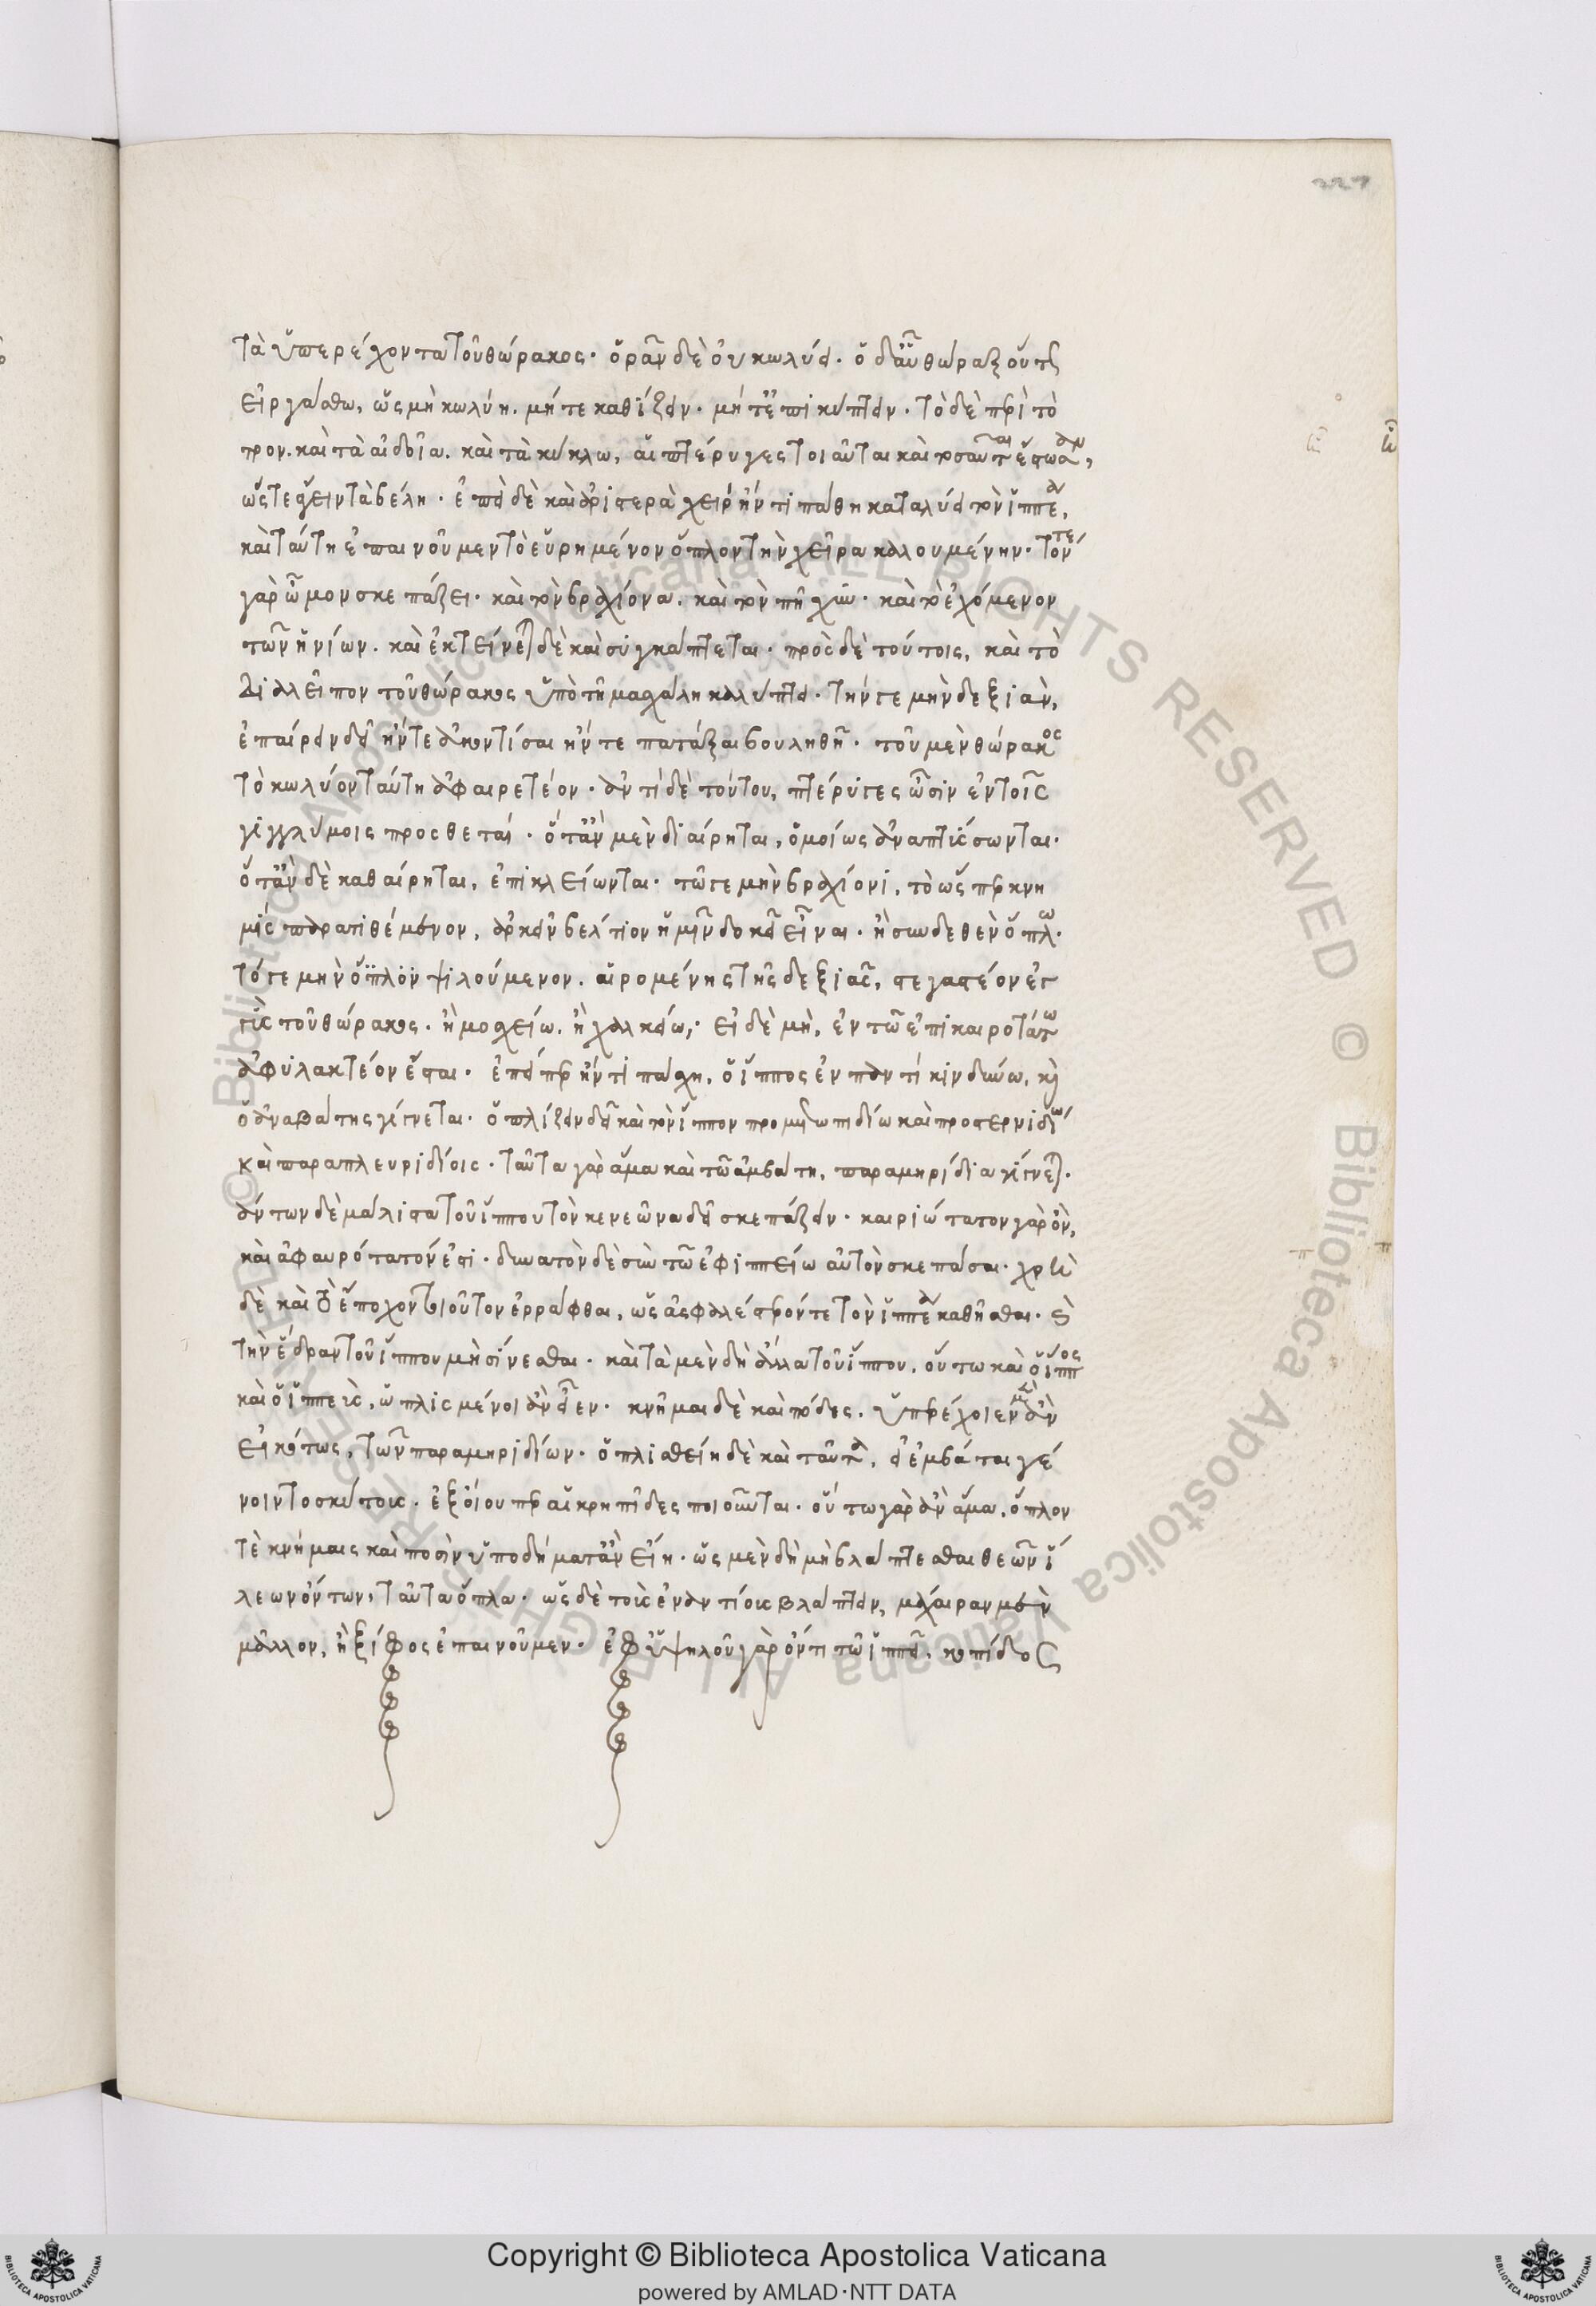 227
τὰ ὑπερέχοντα τοῦ θώρακος· ὁρᾶν δὲ οὐ κωλύει· ὁ δ' αὖ θώραξ οὕτως
εἰργάσθω, ὡς μὴ κωλύη. μήτε καθίζειν· μήτ' ἐπικύπτειν· τὸ δὲ περὶ τὸ
τρον. καὶ τὰ αἰδοῖα. καὶ τὰ κύκλω, αἱ πτέρυγες τοιαῦται καὶ τοσαῦται ἔστωσαν,
ὥστε στέγειν τὰ βέλη· ἐπεὶ δὲ καὶ ἀριστερὰ χεὶρ ἤν τι πάθη καταλύει τὸν ἱππέα,
καὶ ταύτη ἐπαινοῦμεν τὸ εὑρημένον ὅπλον τὴν χεῖρα καλουμένην· τόν τε
γὰρ ὦμον σκεπάζει· καὶ τὸν βραχίονα. καὶ τὸν πῆχυν· καὶ τὸ ἐχόμενον
τῶν ἡνίων. καὶ ἐκτείνεται δὲ καὶ συγκάπτεται· πρὸς δὲ τούτοις, καὶ τὸ
διαλεῖπον τοῦ θώρακος ὑπὸ τῆ μασχάλη καλύπτει· τήν γε μὴν δεξιὰν,
ἐπαίρειν δεῖ ἤν τε ἀκοντίσαι ἤν τε πατάξαι βουληθῆ· τοῦ μὲν θώρακος
τὸ κωλύον ταύτη ἀφαιρετέον· ἀντὶ δὲ τούτου, πτέρυγες ὦσιν ἐν τοῖς
γιγγλύμοις προσθεταί· ὅταν μὲν διαίρηται, ὁμοίως ἀναπτύσσωνται·
ὅταν δὲ καθαίρηται, ἐπικλείωνται· τῶ γε μὴν βραχίονι, τὸ ὥσπερ κνη
μὶς παρατιθέμενον, ἀρκεῖν βέλτιον ἡμῖν δοκεῖ εἶναι· ἢ συνδεθὲν ὅπλω·
τό γε μὴν ὅπλον ψιλούμενον. αἰρομένης τῆς δεξιᾶς, στεγαστέον ἐγ
γὺς τοῦ θώρακος· ἢ μοσχείω. ἢ χαλκείω· εἰ δὲ μὴ, ἐν τῶ ἐπικαιροτάτω
ἀφύλακτέον ἔσται· ἐπείπερ ἤν τι πάσχη, ὁ ἵππος ἐν παντὶ κινδύνω, καὶ
ὁ ἀναβάτης γίγνεται· ὁπλίζειν δεῖ καὶ τὸν ἵππον προμετωπιδίω καὶ προστερνιδίω
καὶ παραπλευριδίοις· ταῦτα γὰρ ἅμα καὶ τῶ ἀμβάτη, παραμηρίδια γίγνεται·
πάντων δὲ μάλιστα τοῦ ἵππου τὸν κενεῶνα δεῖ σκεπάζειν· καιριώτατον γὰρ ὂν,
καὶ ἀφαυρότατόν ἐστι· δυνατὸν δὲ σὺν τῶ ἐφιππείω αὐτὸν σκεπάσαι· χρὴ
δὲ καὶ τὸ ἔποχον τοιοῦτον ἐρράφθαι, ὡς ἀσφαλέστερόν τε τὸν ἱππέα καθῆσθαι· καὶ
τὴν ἕδραν τοῦ ἵππου μὴ σίνεσθαι· καὶ τὰ μὲν δὴ ἄλλα τοῦ ἵππου. οὕτω καὶ ὁ ἵππος
καὶ ὁ ἱππεὺς, ὡπλισμένοι ἂν εἶεν· κνῆμαι δὲ καὶ πόδες. ὑπερέχοιεν μὲν ἂν
εἰκότως, τῶν παραμηριδίων· ὁπλισθείη δὲ καὶ ταῦτα, εἰ ἐμβάται γέ
νοιντο σκύτους· ἐξ οἵου περ αἱ κρηπῖδες ποιοῦνται· οὕτω γὰρ ἂν ἅμα. ὅπλον
τὲ κνήμαις καὶ ποσὶν ὑποδήματ' ἂν εἴη· ὡς μὲν δὴ μὴ βλάπτεσθαι θεῶν ἵ
λεων ὄντων, ταῦτα ὅπλα· ὡς δὲ τοὺς ἐναντίους βλάπτειν, μάχαιραν μὲν
μᾶλλον, ἢ ξίφος ἐπαινοῦμεν· ἐφ' ὑψηλοῦ γὰρ ὄντι τῶ ἱππεῖ. κοπίδος
Copyright © Biblioteca Apostolica Vaticana
powered by AMLAD·NTT DATA